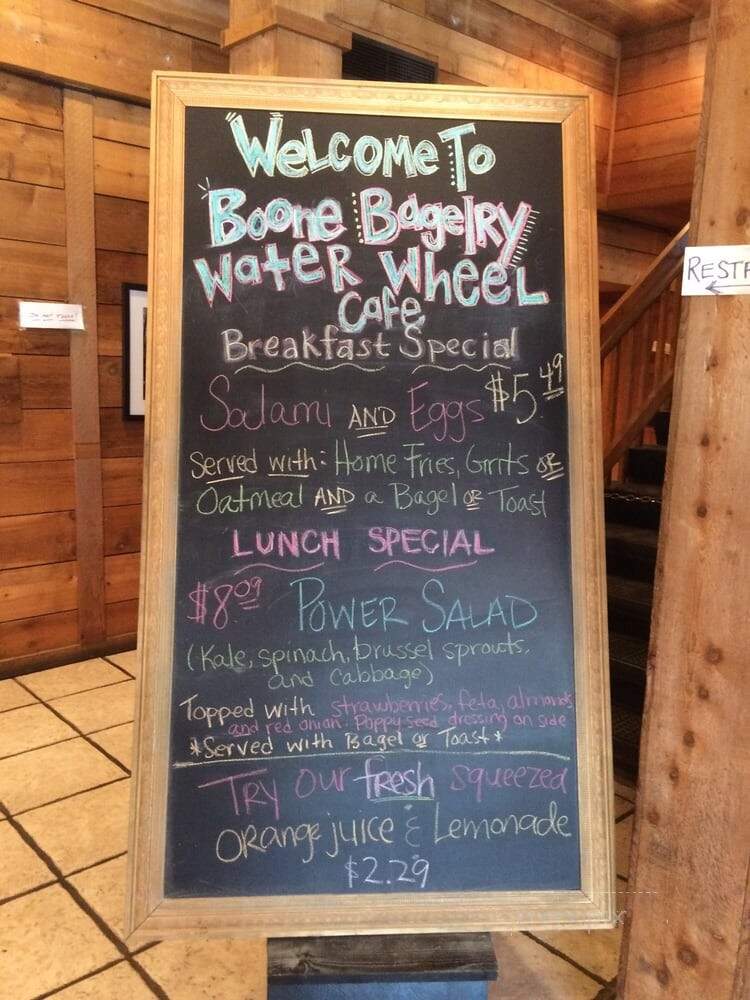 Welcome To
Boone Bagelry
Water Wheel
Cafe
Breakfast Special
Salami AND Eggs $5.49
Served with: Home Fries, Grits OR
Oatmeal AND a Bagel OR Toast
LUNCH SPECIAL
$8.09 POWER SALAD
(Kale, spinach, brussel sprouts,
and cabbage)
Topped with strawberries, feta, almonds
and red onion. Poppy seed dressing on side
*Served with Bagel or Toast*
TRY our fresh squeezed
Orange juice & Lemonade
$2.29
REST